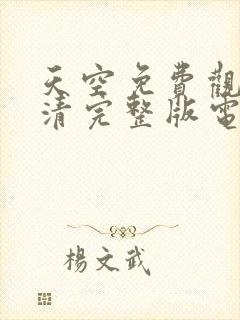 天空免費觀
清完整版電
楊文武